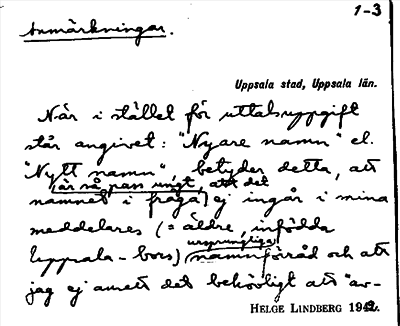 1-3
Anmärkningar.
Uppsala stad, Uppsala län.
När i stället för uttalsuppgift
står angivet: "Nyare namn" el.
"Nytt namn", betyder detta, att
(är så pass ungt, att det
namnet i fråga) ej ingår i mina
meddelares (= äldre, infödda
ursprungliga
Uppsala-bors) namnförråd och att
jag ej ansett det behövligt att "av-
HELGE LINDBERG 194